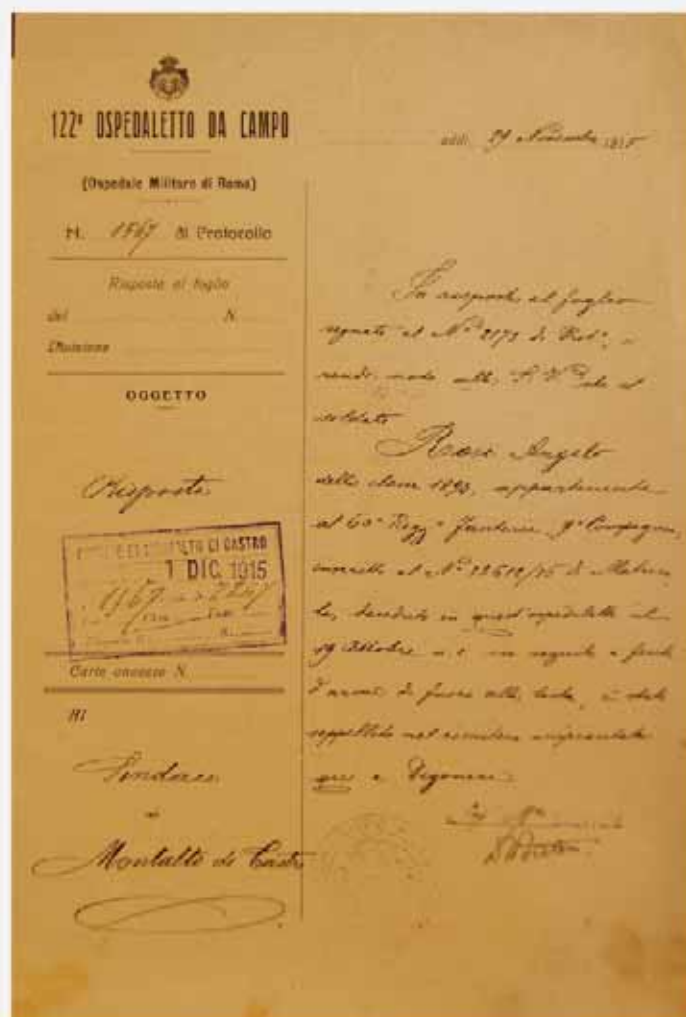 122º OSPEDALETTO DA CAMPO
(Ospedale Militare di Roma)
N. 1567 di Protocollo
Risposta al foglio
del N.
Divisione
OGGETTO
Risposta
DI CASTRO
1 DIC. 1915
Carte annesse N.
Al
Sindaco
di
Montalto di Castro
addì, 29 Novembre 1915
In risposta al foglio
segnato al Nº 2173 di Prot.º,
rendo noto alla S. V. che il
soldato
Rosi Angelo
della classe 1893, appartenente
al 60º Regg.º Fanteria, 9ª Compagnia,
inscritto al Nº di Matrico
la, deceduto in quest'ospedaletto il
19 Ottobre u. s. in seguito a ferita
d'arma di fuoco alla testa, è stato
seppellito nel cimitero improvvisato
qui a Digonera.